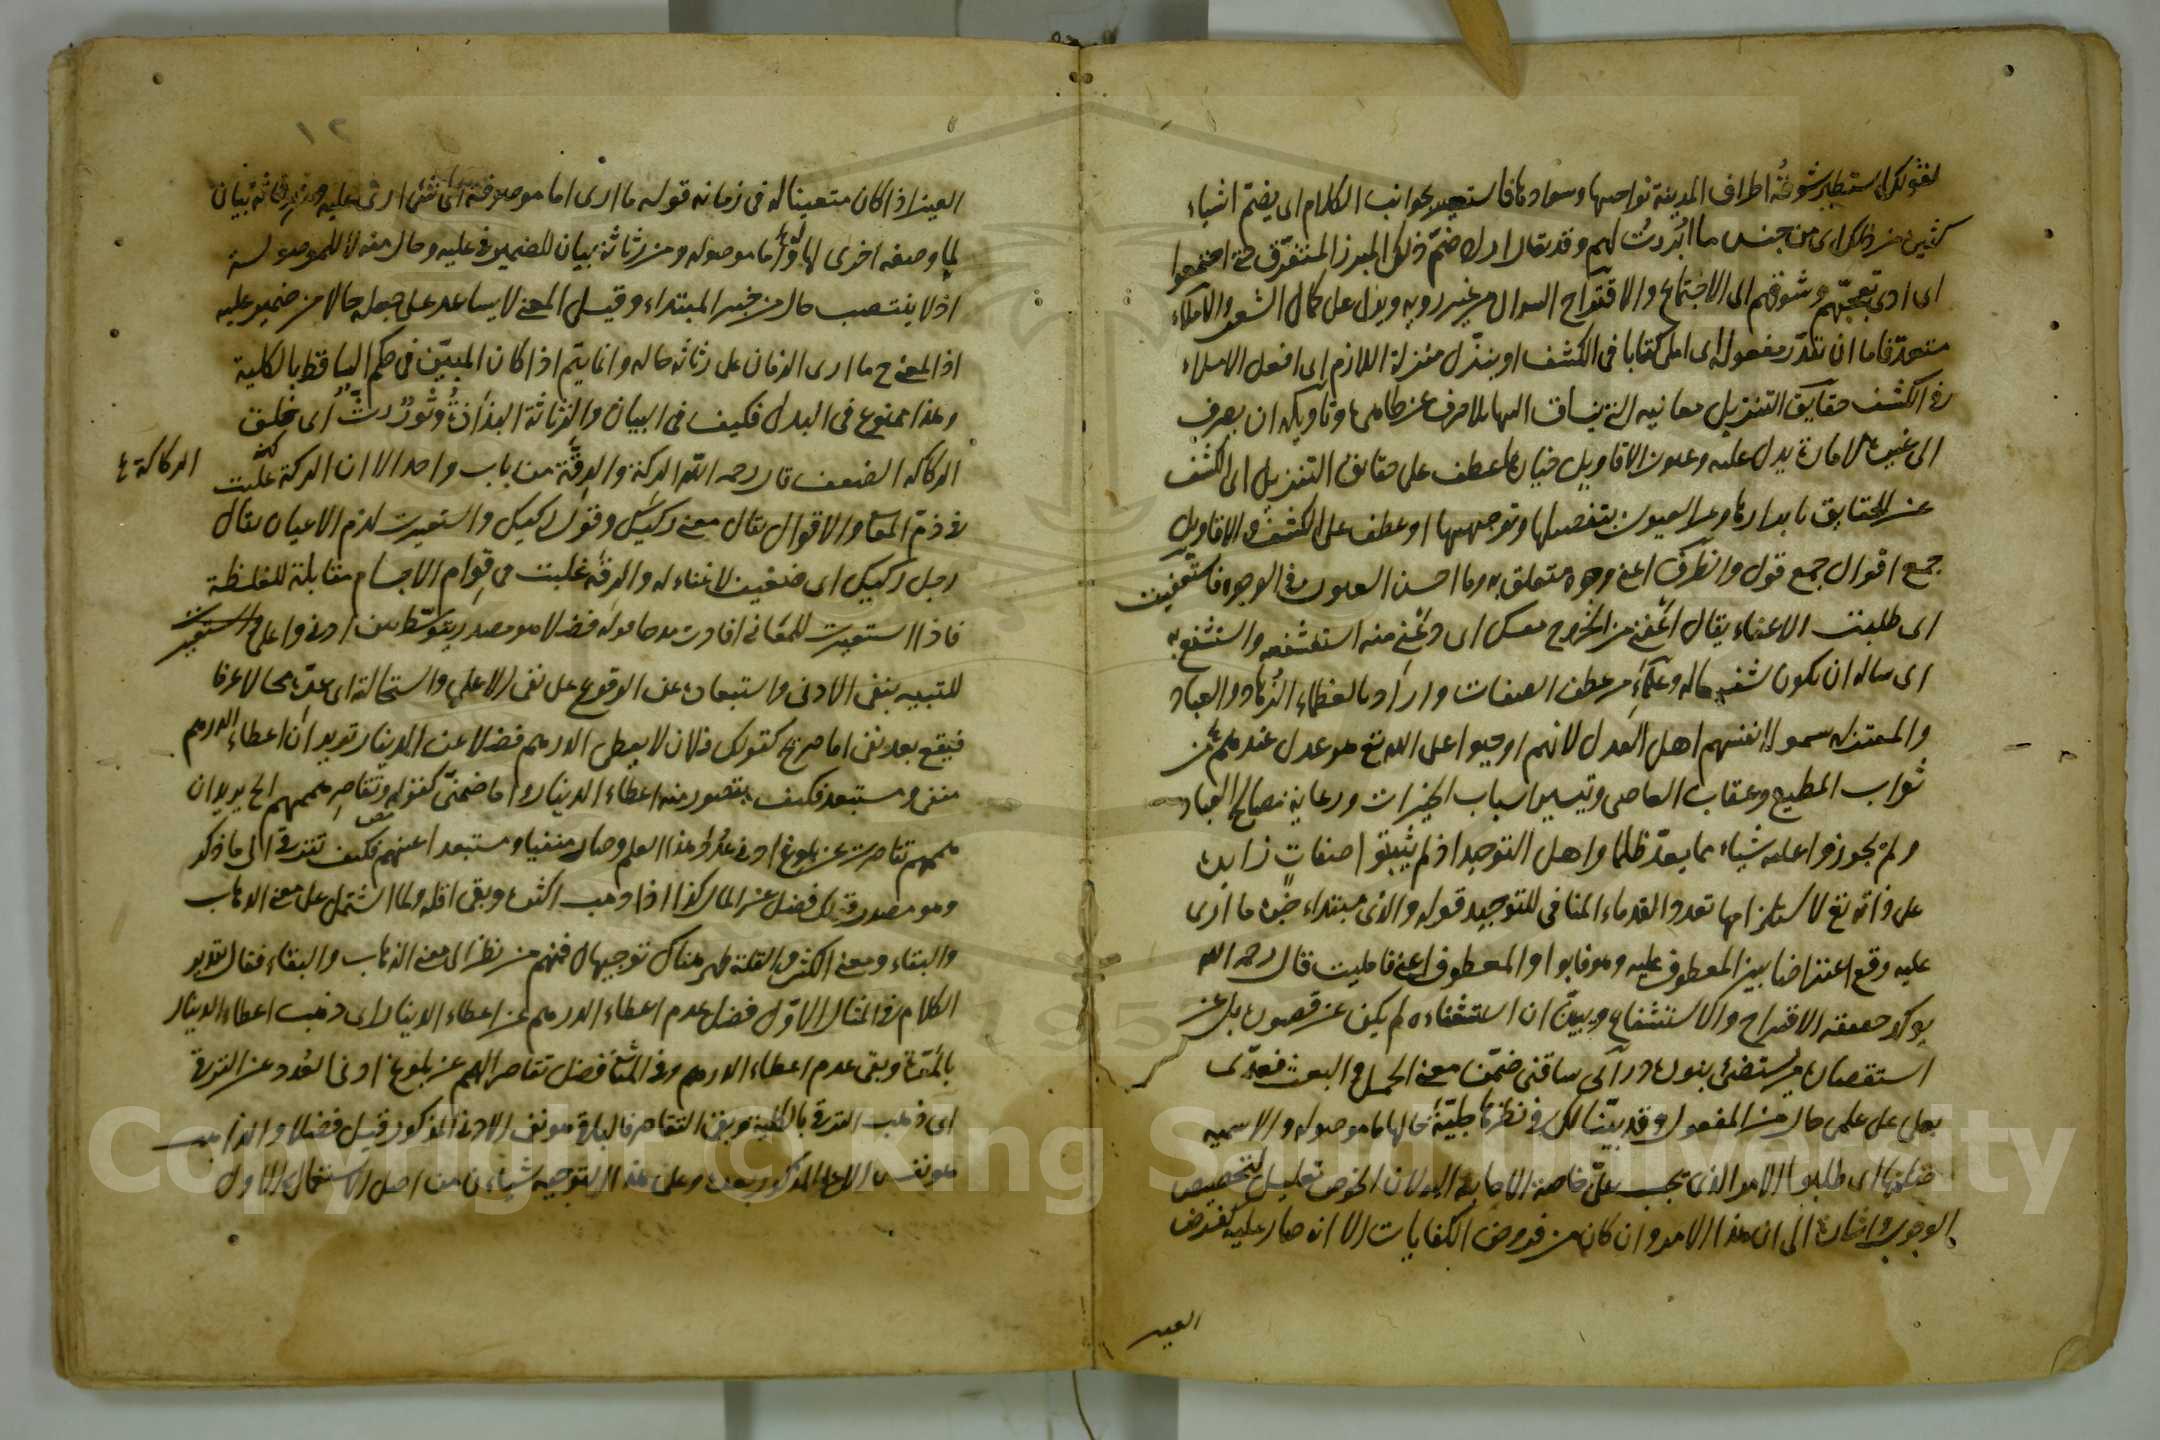 كقولك استطير شوقه اطراف المدينة نواحيها وسوادها فاستعير لجوانب الكلام اى يضم اشياء
كثيرة من ذلك اى من جنس ما ابرزت لهم وقد يقال اراد ضم ذلك المبرز المتفرق حتى اجتمعوا
اى ادى تعجبهم وشوقهم الى الاجتماع والاقتراح السوال من غير روية ويدل على كمال الشعف والاملاء
متعد فاما ان تقدر مفعوله اى املى كتابا فى الكشف او ينزل منزلة اللازم اى افعل الاملاء
فى الكشف حقايق التنزيل معانيه التى يساق اليها بلا صرف عن ظاهرها وتاويله ان يصرف
الى غيره لامارة يدل عليه وعيون الاقاويل خيارها عطف على حقايق التنزيل اى الكشف
عن الحقايق بابرازها وعن العيون بتفصيلها وتوجيهها او عطف على الكشف والاقاويل
جمع اقوال جمع قول والظرف اعنى وجوه متعلق به وما احسن العيون فى الوجوه فاستعفيت
اى طلبت الاعفاء يقال اعفنى من الخروج معك اى دعنى منه استشفعه واستشفع به
اى ساله ان يكون شفيعا له وعلماء من عطف الصفات واراد بالعظماء الزهاد والعباد
والمعتزلة سموا انفسهم اهل العدل لانهم اوجبوا على الله تع ما هو عدل عندهم من
ثواب المطيع وعقاب العاصى وتيسير اسباب الخيرات ورعاية مصالح العباد
ولم يجوزوا عليه شياء مما يعد ظلما واهل التوحيد اذ لم يثبتوا صفات زايدة
على ذاته تع لاستلزامها تعدد القدماء المنافى للتوحيد قوله والذى مبتداء خبره ما ارى
عليه وقع اعتراضا بين المعطوف عليه وهو فابوا والمعطوف اعنى فامليت قال رحمه الله
يوكد حقيقة الاقتراح والاستشفاع ويبين ان استعفاءه لم يكن عن قصوره بل عن
استقصاره من يستضئ بنوره ورآى ساقنى ضمن معنى الحمل والبعث فعدى
بعلى على علمى حال من المفعول وقد بينا لك فى نظرها جلية حالها ما موصولة والاسمية
صلتها اى طلبوا الامر الذى يجب على خاصة الاجابة اليه لان الخوض تعليل لتخصيص
الوجوب واشارة الى ان هذا الامر وان كان من فروض الكفايات الا انه صار عليه كفرض
العين
العين اذا كان متعينا له فى زمانه قوله ما ارى اما موصوفة اى شئ ارى عليه ومن رثاثة بيان
لما وصفه اخرى لها او اما موصولة ومن رثاثة بيان للضمير فى عليه وحال منه لا للموصولة
اذ لا ينتصب حال من خبر المبتداء وقيل المعنى لا يساعد على جعله حالا من ضمير عليه
اذ المعنى ح ما ارى الزمان على رثاثة حاله وانما يتم اذا كان المبين فى حكم الساقط بالكلية
وهذا ممنوع فى البدل فكيف فى البيان والرثاثة البذاذة وثوب رث اى خلق
الركاكة الضعف قال رحمه الله الركة والرقة من باب واحد الا ان الركة غلبت
الركاكة
فى ذم المعانى والاقوال يقال معنى ركيك وقول ركيك واستعيرت لذم الاعيان يقال
رجل ركيك اى ضعيف لا غناء له والرقة غلبت فى قوام الاجسام مقابلة للغلظة
فاذا استعيرت للمعانى افادت مدحا قوله فضلا هو مصدر يتوسط بين ادنى واعلى
للتنبيه بنفى الادنى واستبعاده عن الوقوع على نفى الاعلى واستحالته اى عده محالا عرفا
فيقع بعد نفى اما صريح كقولك فلان لا يعطى الدرهم فضلا عن الدينار تريد ان اعطاء الدرهم
منفى ومستبعد فكيف يتصور منه اعطاء الدينار واما ضمنى كقوله وتقاصر هممهم الخ يريد ان
هممهم تقاصرت عن بلوغ ادنى عدد هذا العلم وصار منفيا ومستبعدا عنهم فكيف تترقى الى ما ذكر
وهو مصدر قولك فضل عن المال كذا اذا ذهب اكثره وبقى اقله ولما اشتمل على معنى الذهاب
والبقاء ومعنى الكثرة والقلة ظهر هناك توجيهان فمنهم من نظر الى معنى الذهاب والبقاء فقال تقدير
الكلام فى المثال الاول فضل عدم اعطاء الدرهم عن اعطاء الدينار اى ذهب اعطاء الدينار
بالمرة وبقى عدم اعطاء الدرهم وفى المثال فضل تقاصر الهمم عن بلوغ ادنى العدد عن الترقى
اى ذهب الترقى بالكلية وبقى التقاصر فالباقى هو نفى الادنى المذكور قبل فضلا والذاهب
هو نفس الاعلى المذكور بعده وعلى هذا التوجيه شيئان من اصل الاستعمال الاول
Copyright © King Saud University
1957